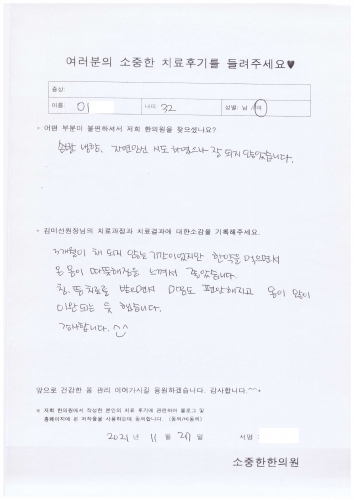 여러분의 소중한 치료후기를 들려주세요♥
증상:
이름: 이 나이: 32 성별: 남 / 여
- 어떤 부분이 불편하셔서 저희 한의원을 찾으셨나요?
손발 냉증. 자연임신 시도 하였으나 잘 되지 않았습니다.
- 김미선원장님의 치료과정과 치료결과에 대한소감을 기록해주세요.
3개월이 채 되지 않는 기간이었지만 한약을 먹으면서
온 몸이 따뜻해짐을 느껴서 좋았습니다.
침, 뜸 치료를 받으면서 마음도 편안해지고 몸이 많이
이완되는 듯 했습니다.
감사합니다. ^^
앞으로 건강한 몸 관리 이어가시길 응원하겠습니다. 감사합니다.^^*
※ 저희 한의원에서 작성한 본인의 치료 후기에 관련하여 블로그 및
홈페이지에 본 저작물을 사용하는데 동의합니다. (동의/비동의)
2021 년 11 월 27 일 서명 :
소중한한의원